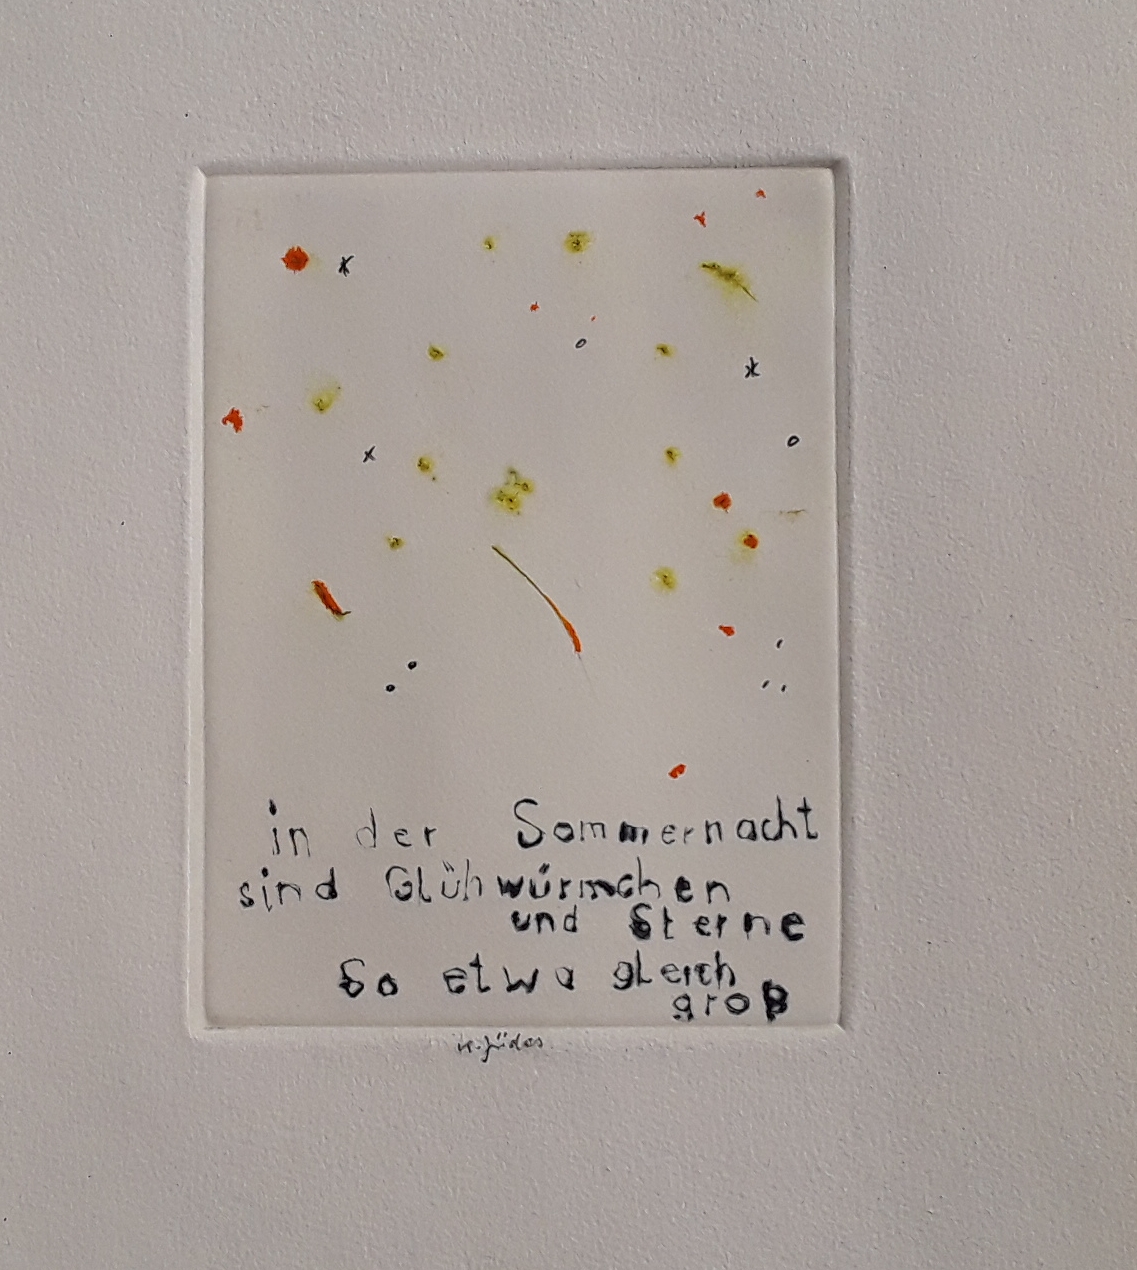 in der Sommernacht
sind Glühwürmchen
und Sterne
So etwa gleich
groß